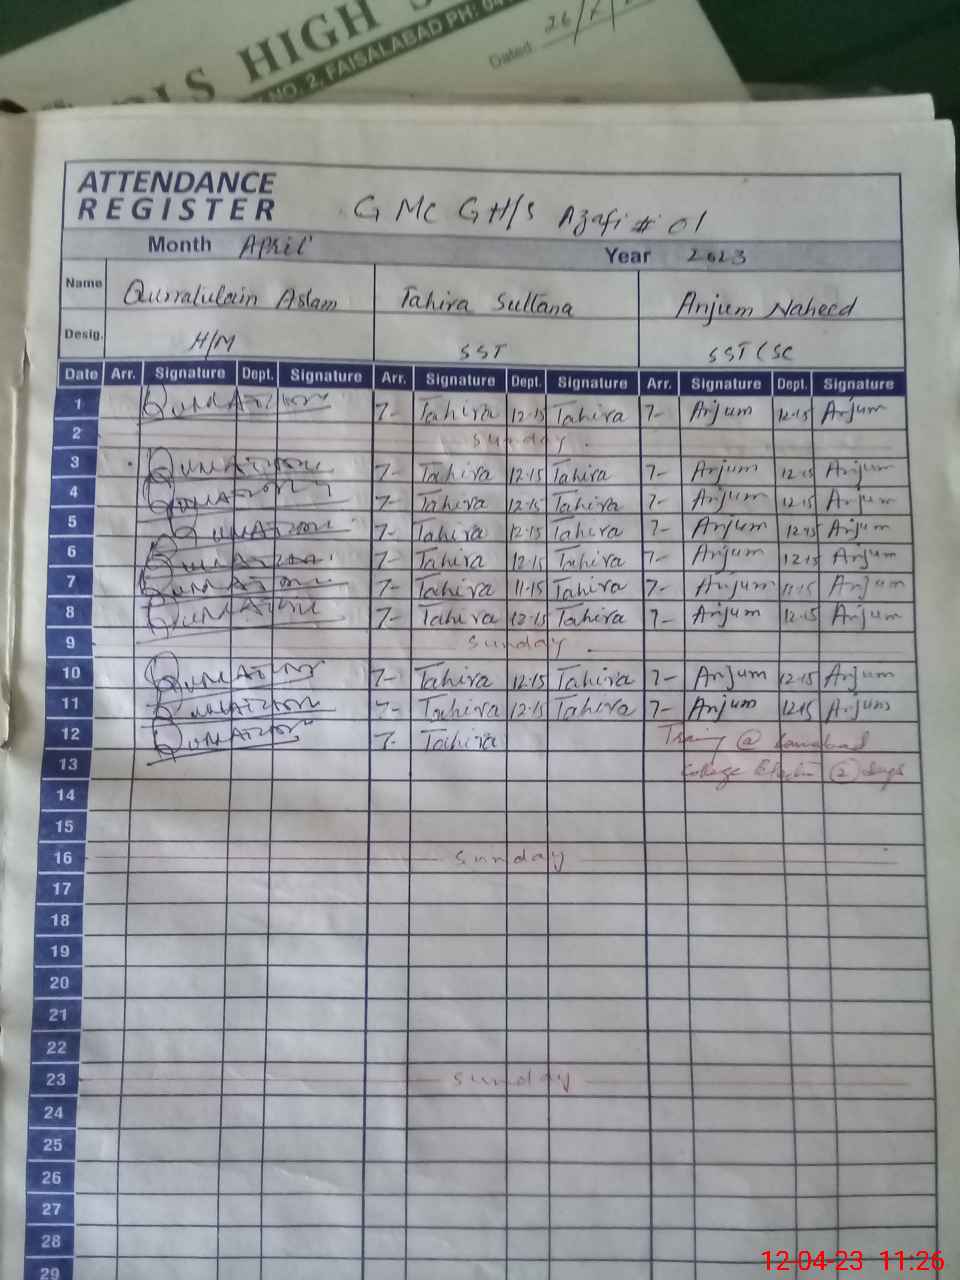 LS HIGH S
NO. 2, FAISALABAD PH: 04
Dated 26/
ATTENDANCE
REGISTER G MC G H/S Azafi # 01
Month April Year 2023
Name Qurratulain Aslam Tahira Sultana Anjum Naheed
Desig. H/M SST SST (SC
Date Arr. Signature Dept. Signature Arr. Signature Dept. Signature Arr. Signature Dept. Signature
1 7- Tahira 12-15 Tahira 7- Anjum 12-15 Anjum
2 Sunday
3 7- Tahira 12-15 Tahira 7- Anjum 12-15 Anjum
4 7- Tahira 12-15 Tahira 7- Anjum 12-15 Anjum
5 7- Tahira 12-15 Tahira 7- Anjum 12-15 Anjum
6 7- Tahira 12-15 Tahira 7- Anjum 12-15 Anjum
7 7- Tahira 11-15 Tahira 7- Anjum 11-15 Anjum
8 7- Tahira 12-15 Tahira 7- Anjum 12-15 Anjum
9 Sunday
10 7- Tahira 12-15 Tahira 7- Anjum 12-15 Anjum
11 7- Tahira 12-15 Tahira 7- Anjum 12-15 Anjum
12 7- Tahira @
13 College
14
15
16 Sunday
17
18
19
20
21
22
23 Sunday
24
25
26
27
28
29
12-04-23 11:26